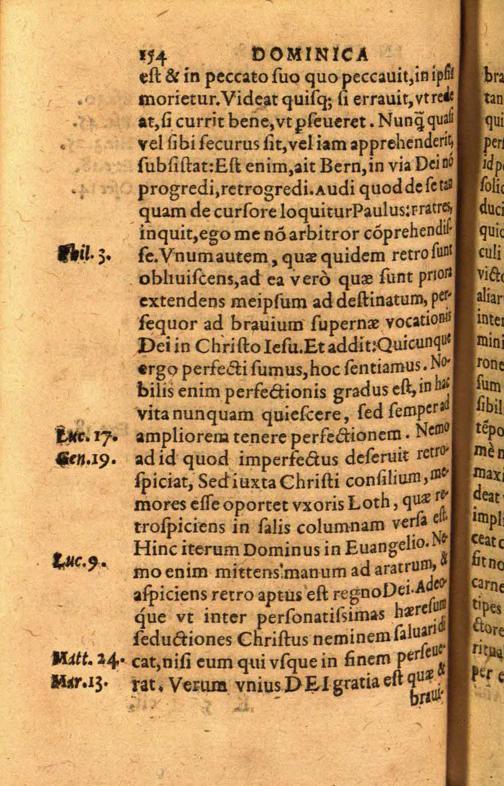 154 DOMINICA
est & in peccato suo quo peccauit, in ipso
morietur. Videat quisq; si errauit, vt rede
at, si currit bene, vt ꝑseueret. Nunq̃ quasi
vel sibi securus sit, vel iam apprehenderit,
subsistat: Est enim, ait Bern, in via Dei nō
progredi, retrogredi. Audi quod de se tan
quam de cursore loquitur Paulus: Fratres,
inquit, ego me nō arbitror cōprehendis-
Phil. 3. se. Vnum autem, quæ quidem retro sunt
obliuiscens, ad ea verò quæ sunt priora
extendens meipsum ad destinatum, per-
sequor ad brauium supernæ vocationis
Dei in Christo Iesu. Et addit: Quicunque
ergo perfecti sumus, hoc sentiamus. No-
bilis enim perfectionis gradus est, in hac
vita nunquam quiescere, sed semper ad
Luc. 17. ampliorem tenere perfectionem. Nemo
Gen. 19. ad id quod imperfectus deseruit retro-
spiciat, Sed iuxta Christi consilium, me-
mores esse oportet vxoris Loth, quæ re-
trospiciens in salis columnam versa est.
Hinc iterum Dominus in Euangelio. Ne-
Luc. 9. mo enim mittens manum ad aratrum, &
aspiciens retro aptus est regno Dei. Adeo-
q́ue vt inter personatissimas hæresum
seductiones Christus neminem saluari di
Matt. 24. cat, nisi eum qui vsque in finem perseue-
Mar. 13. rat. Verum vnius DEI gratia est quæ &
braui-
bra
tan
qui
per
id p
solic
duci
quic
culi
victo
aliar
inter
mini
rone
sum
sibil
tēpo
mē n
maxi
deat
impl
ceat c
sit no
carne
tipes
ctore
ritua
per e